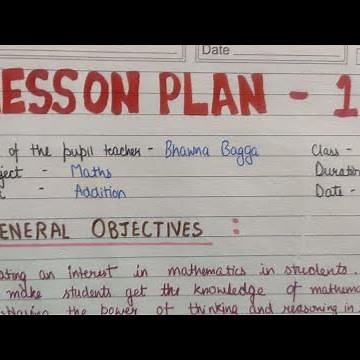 Date
LESSON PLAN - 1
of the pupil teacher - Bhawna Bagga Class -
ject - Maths Duration
- Addition Date -
GENERAL OBJECTIVES :
ating an interest in mathematics in students.
make students get the knowledge of mathema
the power of thinking and reasoning in